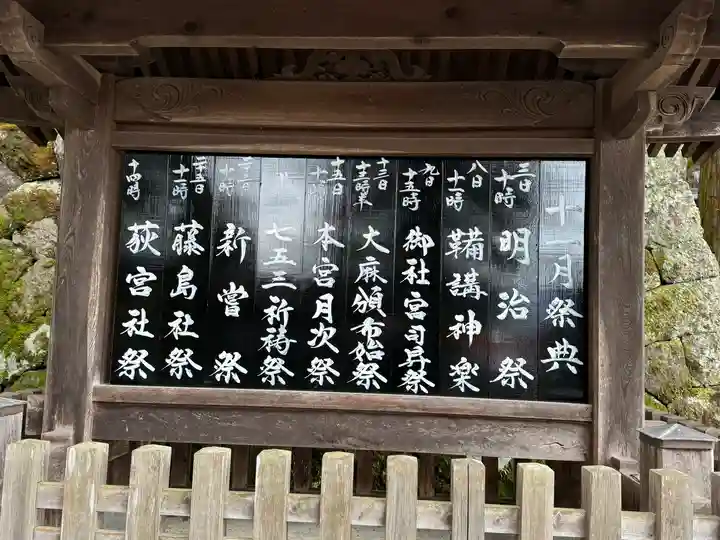 十一月祭典
三日 十時 明治祭
八日 十一時 鞴講神楽
九日 十五時 御社宮司昇祭
十三日 十三時半 大麻頒布始祭
十五日 十一時 本宮月次祭
〃 七五三祈祷祭
二十三日 十時 新嘗祭
二十五日 十一時 藤島社祭
十四時 荻宮社祭